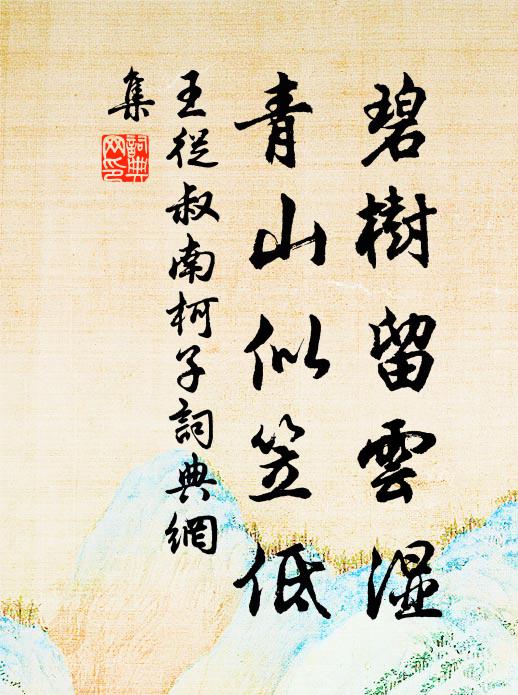 碧樹留雲湿
青山似笠低
王従叔南柯子詞典網
集
詞典網印